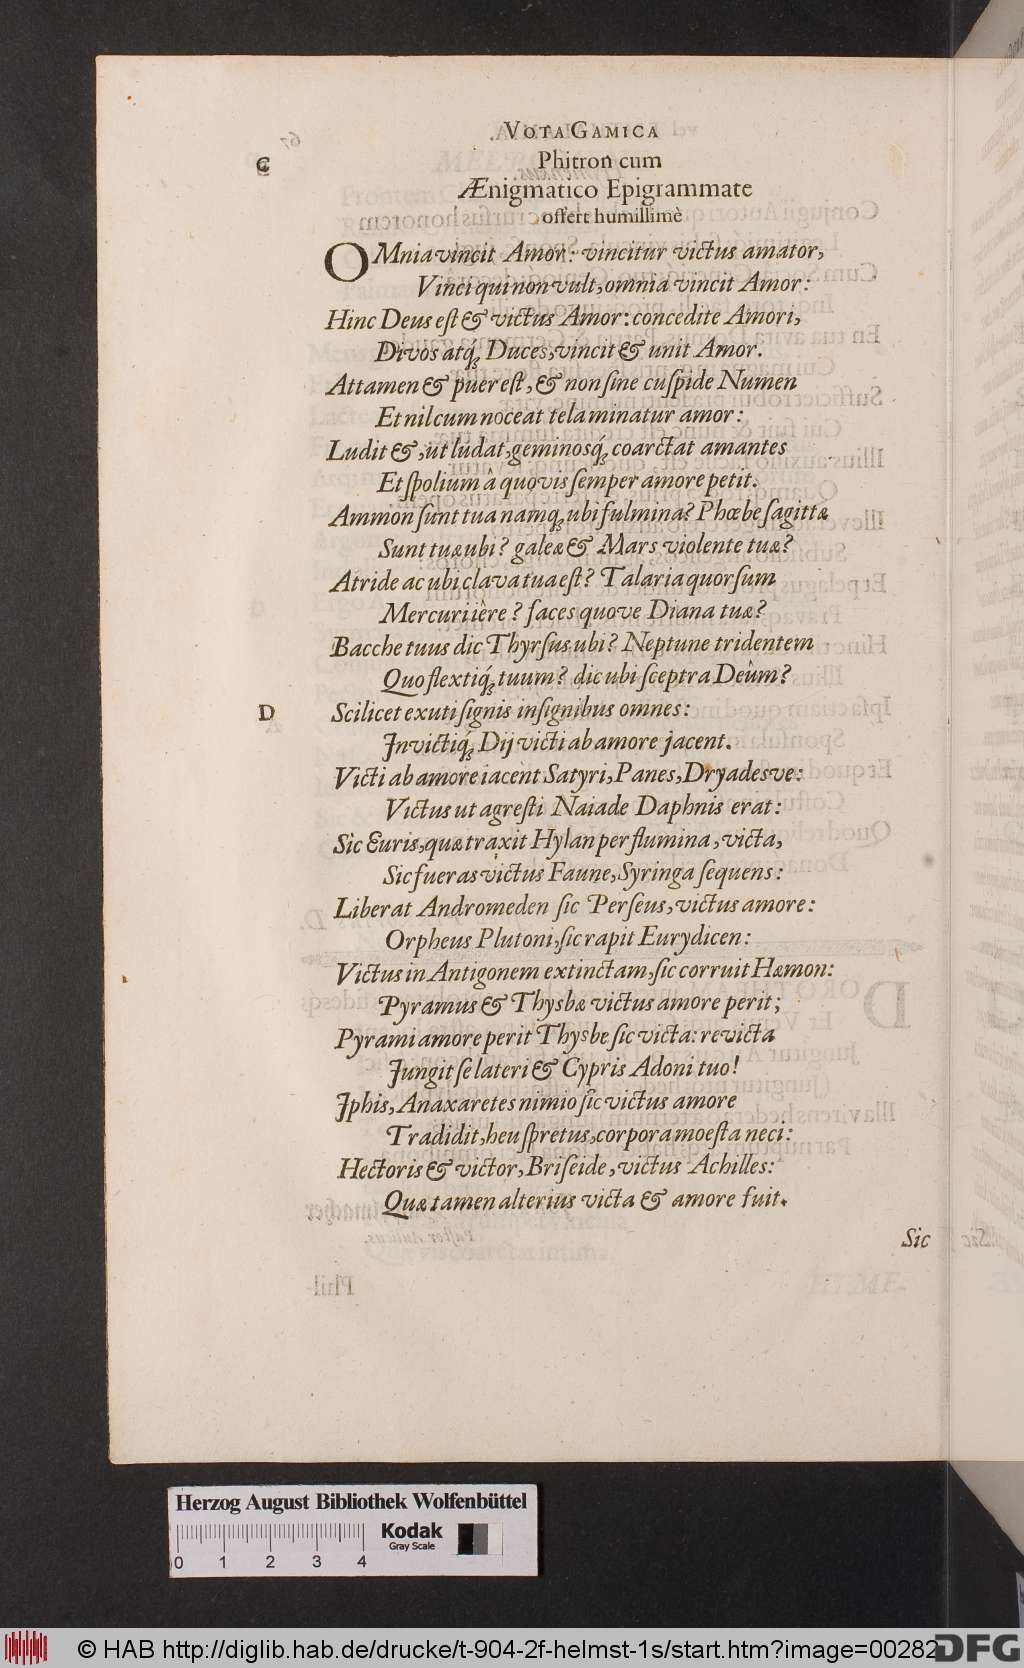 VOTA GAMICA
C
Phitron cum
Ænigmatico Epigrammate
offert humillimè
OMnia vincit Amor: vincitur victus amator,
Vinci qui non vult, omnia vincit Amor:
Hinc Deus eſt & victus Amor: concedite Amori,
Divos atq́; Duces, vincit & unit Amor.
Attamen & puer eſt, & non ſine cuſpide Numen
Et nil cum noceat tela minatur amor:
Ludit &, ut ludat, geminosq́; coarctat amantes
Et ſpolium â quovis ſemper amore petit.
Ammon ſunt tua namq; ubi fulmina? Phœbe ſagittæ
Sunt tuæ ubi? galeæ & Mars violente tuæ?
Atride ac ubi clava tua eſt? Talaria quorſum
Mercurii ère? faces quove Diana tuæ?
Bacche tuus dic Thyrſus ubi? Neptune tridentem
Quo flextiq́; tuum? dic ubi ſceptra Deûm?
D
Scilicet exuti ſignis inſignibus omnes:
Invictiq́; Dij victi ab amore jacent.
Victi ab amore iacent Satyri, Panes, Dryadesve:
Victus ut agreſti Naiade Daphnis erat:
Sìc Euris, quæ traxit Hylan per flumina, victa,
Sic fueras victus Faune, Syringa ſequens:
Liberat Andromeden ſic Perſeus, victus amore:
Orpheus Plutoni, ſic rapit Eurydicen:
Victus in Antigonem extinctam, ſic corruit Hæmon:
Pyramus & Thysbæ victus amore perit;
Pyrami amore perit Thysbe ſic victa: revicta
Jungit ſe lateri & Cypris Adoni tuo!
Iphis, Anaxaretes nimio ſic victus amore
Tradidit, heu ſpretus, corpora moeſta neci:
Hectoris & victor, Briſeide, victus Achilles:
Quæ tamen alterius victa & amore fuit.
Sic
Herzog August Bibliothek Wolfenbüttel
0 1 2 3 4
Kodak
Gray Scale
© HAB http://diglib.hab.de/drucke/t-904-2f-helmst-1s/start.htm?image=00282
DFG